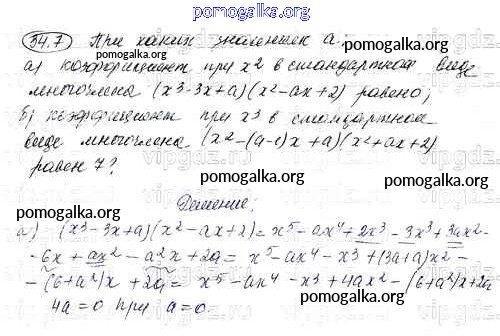 pomogalka.org
34.7 При каких значениях a
pomogalka.org
а) коэффициент при x2 в стандартном виде
многочлена (x³-3x+a)(x²-ax+2) равен 0;
б) коэффициент при x3 в стандартном
виде многочлена (x²-(a-1)x+a)(x²+ax+2)
равен 7?
pomogalka.org
Решение:
pomogalka.org
а) (x³-3x+a)(x²-ax+2)= x⁵-ax⁴+2x³-3x³+3ax²-
-6x+ax²-a²x+2a= x⁵-ax⁴-x³+(3a+a)x²-
-(6+a²)x+2a= x⁵-ax⁴-x³+4ax²-(6+a²)x+2a
4a=0 при a=0.
pomogalka.org
pomogalka.org